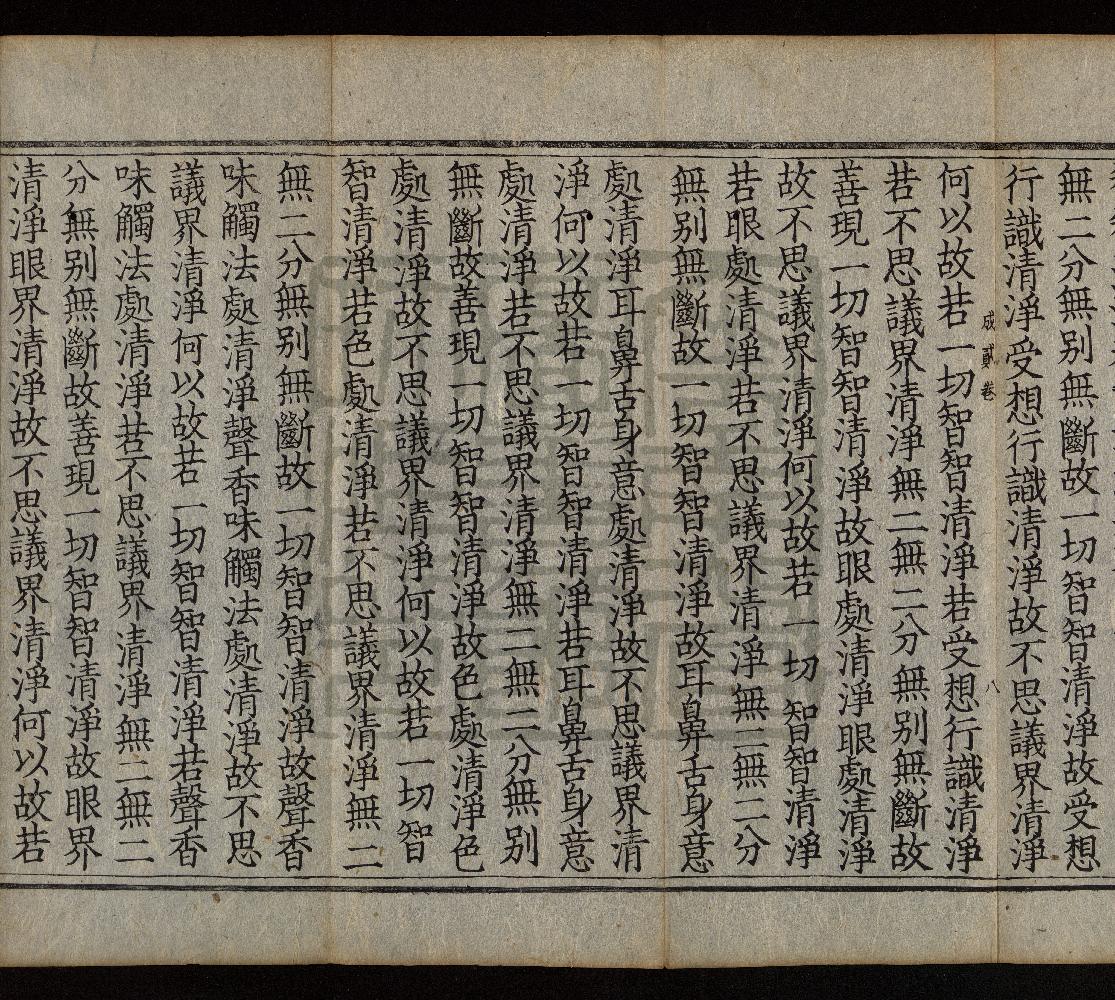 無二分無别無斷故一切智智清淨故受想
行識清淨受想行識清淨故不思議界清淨
成 貳卷 八
何以故若一切智智清淨若受想行識清淨
若不思議界清淨無二無二分無别無斷故
善現一切智智清淨故眼處清淨眼處清淨
故不思議界清淨何以故若一切智智清淨
若眼處清淨若不思議界清淨無二無二分
無别無斷故一切智智清淨故耳鼻舌身意
處清淨耳鼻舌身意處清淨故不思議界清
淨何以故若一切智智清淨若耳鼻舌身意
處清淨若不思議界清淨無二無二分無别
無斷故善現一切智智清淨故色處清淨色
處清淨故不思議界清淨何以故若一切智
智清淨若色處清淨若不思議界清淨無二
無二分無别無斷故一切智智清淨故聲香
味觸法處清淨聲香味觸法處清淨故不思
議界清淨何以故若一切智智清淨若聲香
味觸法處清淨若不思議界清淨無二無二
分無别無斷故善現一切智智清淨故眼界
清淨眼界清淨故不思議界清淨何以故若